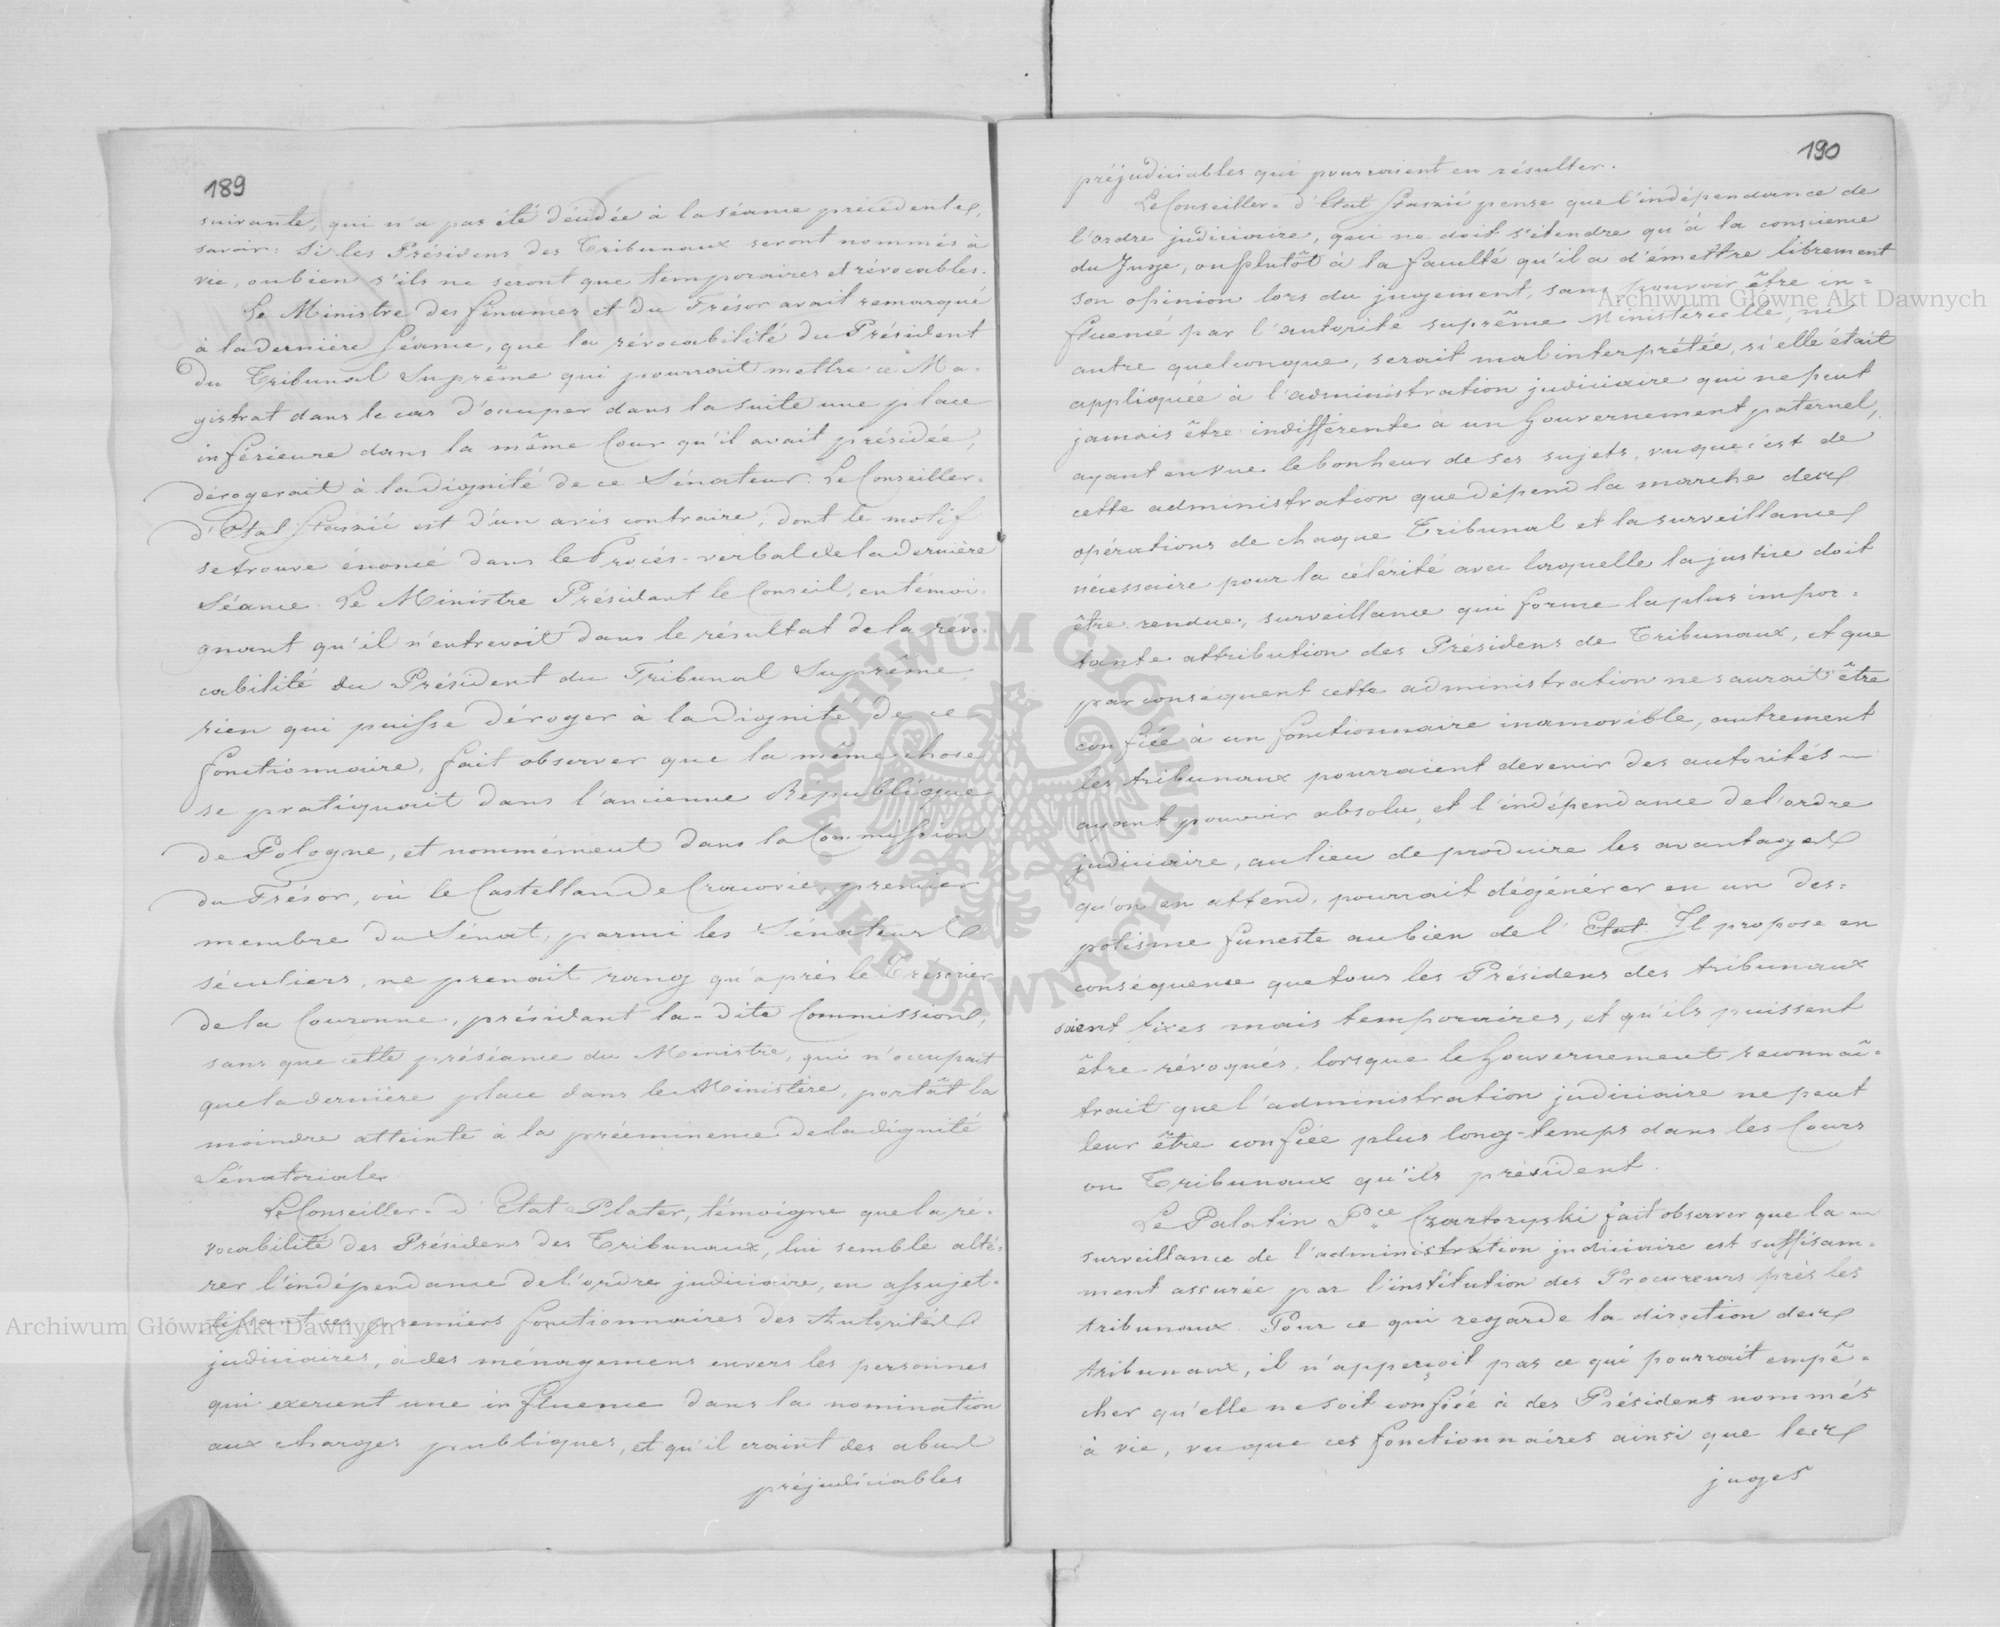 189
suivante, qui n'a pas été décidée à la séance précédente,
savoir: Si les Présidens des Tribunaux seront nommés à
vie, ou bien s'ils ne seront que temporaires et révocables.
Le Ministre des finances et du Trésor avait remarqué
à la dernière Séance, que la révocabilité du Président
du Tribunal Suprême qui pourrait mettre ce Ma-
gistrat dans le cas d'occuper dans la suite une place
inférieure dans la même Cour qu'il avait présidée,
dérogerait à la dignité de ce Sénateur. Le Conseiller-
d'Etat Staszic est d'un avis contraire, dont le motif
se trouve énoncé dans le Procès-verbal de la dernière
Séance. Le Ministre Présidant le Conseil, en témoi-
gnant qu'il n'entrevoit dans le résultat de la révo-
cabilité du Président du Tribunal Suprême
rien qui puisse déroger à la dignité de ce
fonctionnaire, fait observer que la même chose
se pratiquait dans l'ancienne République
de Pologne, et nommément dans la Commission
du Trésor, où le Castellan de Cracovie, premier
membre du Sénat, parmi les Sénateurs
séculiers, ne prenait rang qu'après le Trésorier
de la Couronne, présidant la-dite Commission,
sans que cette préséance du Ministre, qui n'occupait
que la dernière place dans le Ministère, portât la
moindre atteinte à la prééminence de la dignité
Sénatoriale.
Le Conseiller-d'Etat Plater, témoigne que la ré-
vocabilité des Présidens des Tribunaux, lui semble alté-
rer l'indépendance de l'ordre judiciaire, en assujet-
tissant ces premiers fonctionnaires des Autorités
judiciaires, à des ménagemens envers les personnes
qui exercent une influence dans la nomination
aux charges publiques, et qu'il craint des abus
préjudiciables
190
préjudiciables qui pourraient en résulter.
Le Conseiller-d'Etat Staszic pense que l'indépendance de
l'ordre judiciaire, qui ne doit s'étendre qu'à la conscience
du Juge, ou plutôt à la faculté qu'il a d'émettre librement
son opinion lors du jugement, sans pouvoir être in-
fluencé par l'autorité suprême Ministerielle, ni
autre quelconque, serait mal interprétée, si elle était
appliquée à l'administration judiciaire qui ne peut
jamais être indifférente à un Gouvernement paternel,
ayant en vue le bonheur de ses sujets, vu que c'est de
cette administration que dépend la marche des
opérations de chaque Tribunal et la surveillance
nécessaire pour la célérité avec laquelle la justice doit
être rendue, surveillance qui forme la plus impor-
tante attribution des Présidens de Tribunaux, et que
par conséquent cette administration ne saurait être
confiée à un fonctionnaire inamovible, autrement
les tribunaux pourraient devenir des autorités
ayant pouvoir absolu, et l'indépendance de l'ordre
judiciaire, au lieu de produire les avantages
qu'on en attend, pourrait dégénérer en un des-
potisme funeste au bien de l'Etat. Il propose en
conséquence que tous les Présidens des tribunaux
soient fixes mais temporaires, et qu'ils puissent
être révoqués, lorsque le Gouvernement reconnaî-
trait que l'administration judiciaire ne peut
leur être confiée plus long-temps dans les Cours
ou Tribunaux qu'ils président.
Le Palatin Pce Czartoryski fait observer que la
surveillance de l'administration judiciaire est suffisam-
ment assurée par l'institution des Procureurs près les
tribunaux. Pour ce qui regarde la direction des
tribunaux, il n'apperçoit pas ce qui pourrait empê-
cher qu'elle ne soit confiée à des Présidens nommés
à vie, vu que ces fonctionnaires ainsi que les
juges
Archiwum Główne Akt Dawnych
Archiwum Główne Akt Dawnych
ARCHIWUM GŁÓWNE AKT DAWNYCH